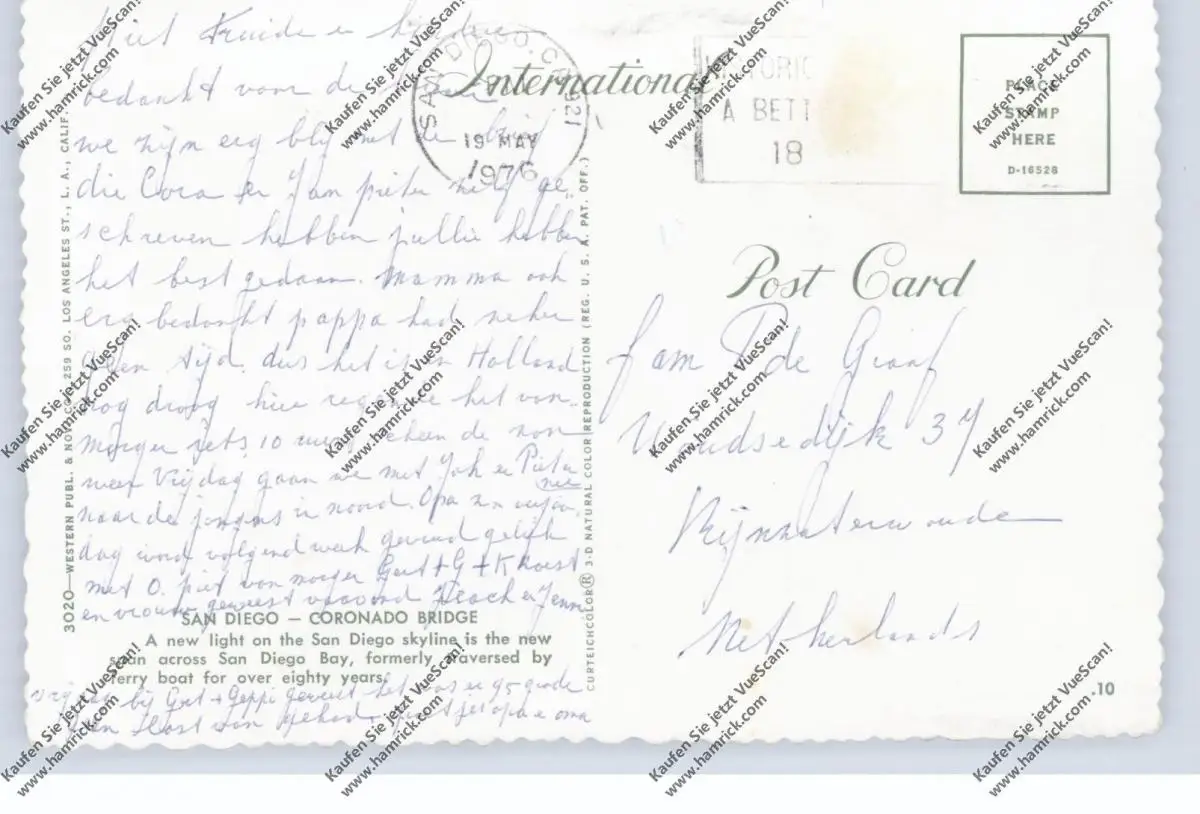 Piet Truide en kinderen
bedankt voor de
we zijn erg blij met de brief
die Cora en Jan pieter zelf ge
schreven hebben jullie hebben
het best gedaan. Mamma ook
erg bedankt pappa had zeker
geen tijd. dus het is in Holland
nog droog hier regende het van
morgen iets 10 uur scheen de zon
weer Vrijdag gaan we met Joh en Pietu
naar de jongens in noord. Opa zn verjaar
dag word volgend week gevierd gelijk
met O. piet van morgen Gert + G + K
en vrouw geweest
bij Gert + Geppi geweest het was er 95 grade
geen last van gehad. groetjes opa e oma
International
SAN DIEGO, CA 921
19 MAY
1976
HISTORIC
A BETT
18
PLACE
STAMP
HERE
D-16528
Post Card
fam P de Graaf
Woudsedijk 37
Rijnsaterwoude
Netherlands
3020—WESTERN PUBL. & NOV. CO., 259 SO. LOS ANGELES ST., L. A., CALIF.
CURTEICHCOLOR® 3-D NATURAL COLOR REPRODUCTION (REG. U. S. A. PAT. OFF.)
SAN DIEGO — CORONADO BRIDGE
A new light on the San Diego skyline is the new
span across San Diego Bay, formerly traversed by
ferry boat for over eighty years.
.10
Kaufen Sie jetzt VueScan!
www.hamrick.com